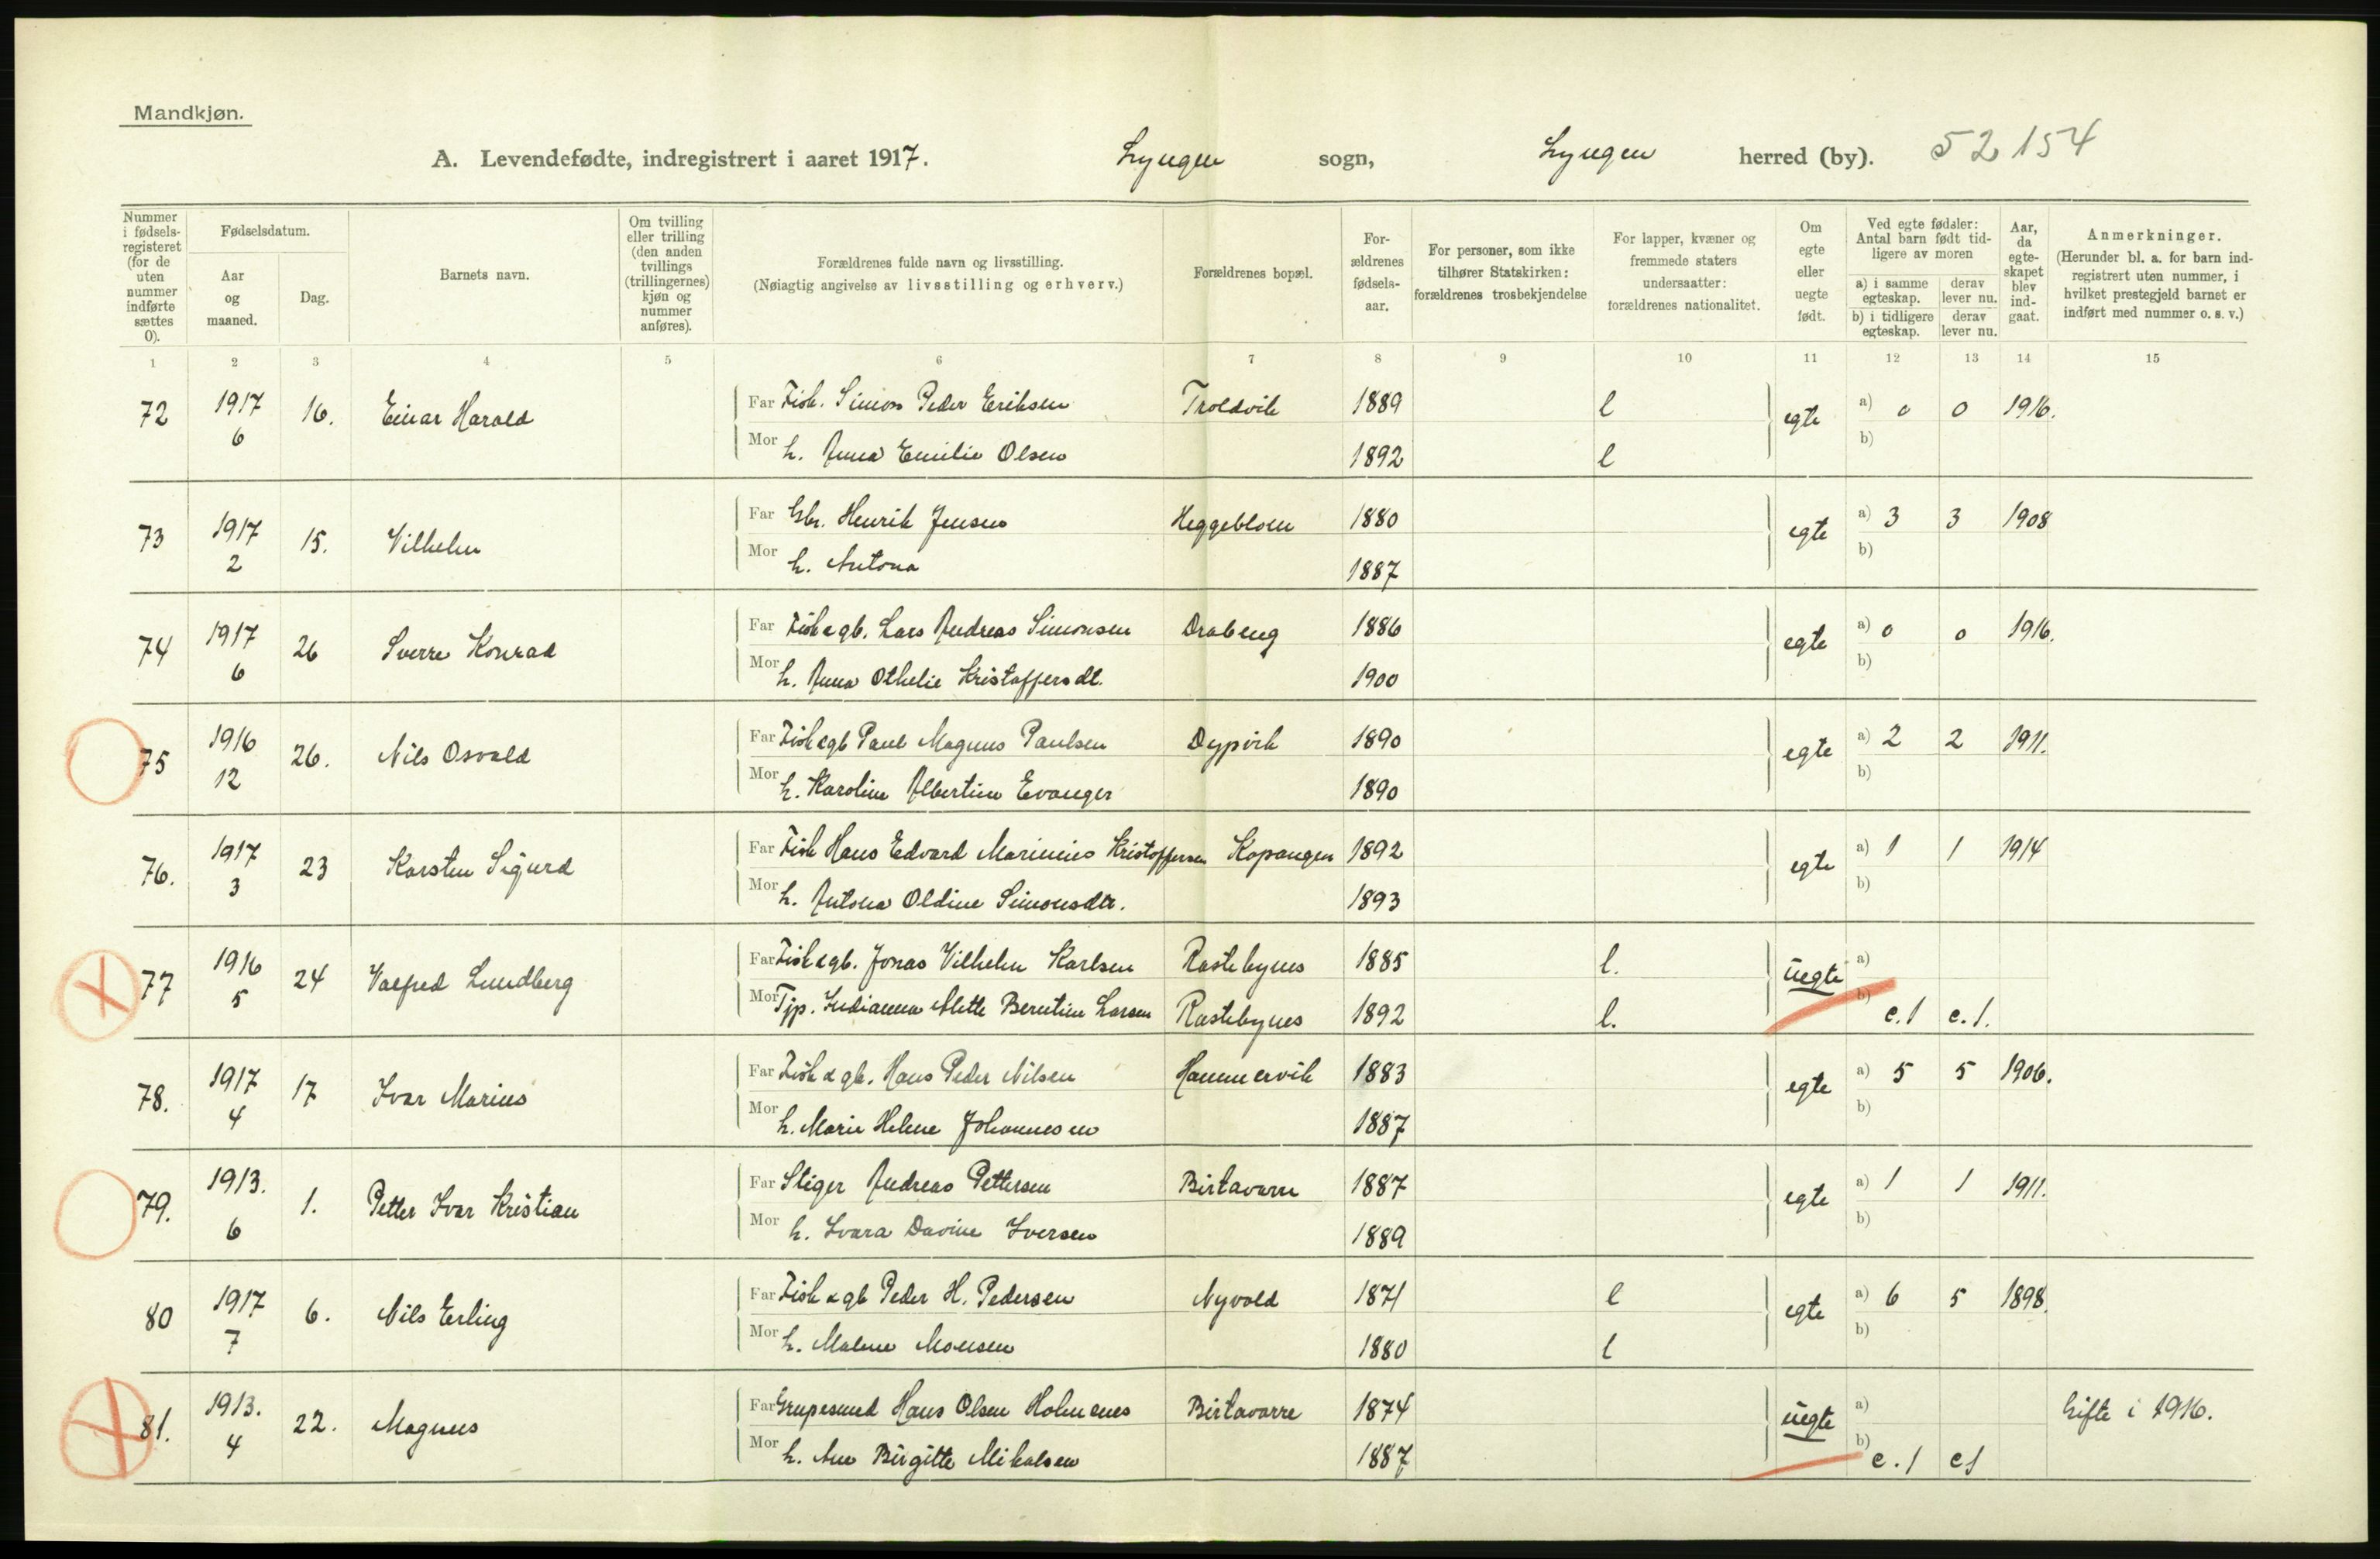 Mandkjøn.
A. Levendefødte, indregistrert i aaret 1917. Lyngen sogn, Lyngen herred (by). 52 154
Nummer i fødsels-registeret (for de uten nummer indførte sættes 0).
Fødselsdatum.
Aar og maaned.
Dag.
Barnets navn.
Om tvilling eller trilling (den anden tvillings (trillingernes) kjøn og nummer anføres).
Forældrenes fulde navn og livsstilling.
(Nøiagtig angivelse av livsstilling og erhverv.)
Forældrenes bopæl.
For-ældrenes fødsels-aar.
For personer, som ikke tilhører Statskirken: forældrenes trosbekjendelse
For lapper, kvæner og fremmede staters undersaatter: forældrenes nationalitet.
Om egte eller uegte født.
Ved egte fødsler: Antal barn født tid-ligere av moren
a) i samme egteskap.
derav lever nu.
b) i tidligere egteskap.
derav lever nu.
Aar, da egte-skapet blev ind-gaat.
Anmerkninger.
(Herunder bl. a. for barn ind-registrert uten nummer, i hvilket prestegjeld barnet er indført med nummer o. s. v.)
1 2 3 4 5 6 7 8 9 10 11 12 13 14 15
72 1917 6 16. Einar Harald Far Fisk. Simon Peder Eriksen Troldvik 1889 l egte a) 0 0 1916.
Mor h. Anna Emilie Olsen 1892 l b)
73 1917 2 15. Vilhelm Far Gbr. Henrik Jensen Heggeblom 1880 egte a) 3 3 1908
Mor h. Antona 1887 b)
74 1917 6 26 Sverre Konrad Far Fisk & gb. Lars Andreas Simonsen Drabeng 1886 egte a) 0 0 1916.
Mor h. Anna Othelie Kristoffersdt. 1900 b)
75 1916 12 26. Nils Osvald Far Fisk & gb Paul Magnus Paulsen Dypvik 1890 egte a) 2 2 1911.
Mor h. Karoline Albertine Evanger 1890 b)
76. 1917 3 23 Karsten Sigurd Far Fisk Hans Edvard Marinius Kristoffersen Kopangen 1892 egte a) 1 1 1914
Mor h. Antona Oldine Simonsdtr. 1893 b)
77 1916 5 24 Valfred Lundberg Far Fisk & gb. Jonas Vilhelm Karlsen Rastebynes 1885 l. uegte a)
Mor Tjp. Indianna Mette Berntine Larsen Rastebynes 1892 l. b) e.1 e.1.
78. 1917 4 17 Ivar Marius Far Fisk & gb. Hans Peder Nilsen Hammervik 1883 egte a) 5 5 1906.
Mor h. Marie Helene Johannesen 1887 b)
79. 1913. 6 1. Petter Ivar Kristian Far Stiger Andreas Pettersen Birtavarre 1887 egte a) 1 1 1911.
Mor h. Ivara Davine Iversen 1889 b)
80 1917 7 6. Nils Erling Far Fisk & gb Peder H. Pedersen Nyvold 1871 l egte a) 6 5 1898.
Mor h. Malene Monsen 1880 l b)
81. 1913. 4 22. Magnus Far Grupesmed Hans Olsen Holmenes Birtavarre 1874 uegte a) Gifte i 1916.
Mor h. Ane Birgitte Mikalsen 1887 b) e.1 e1